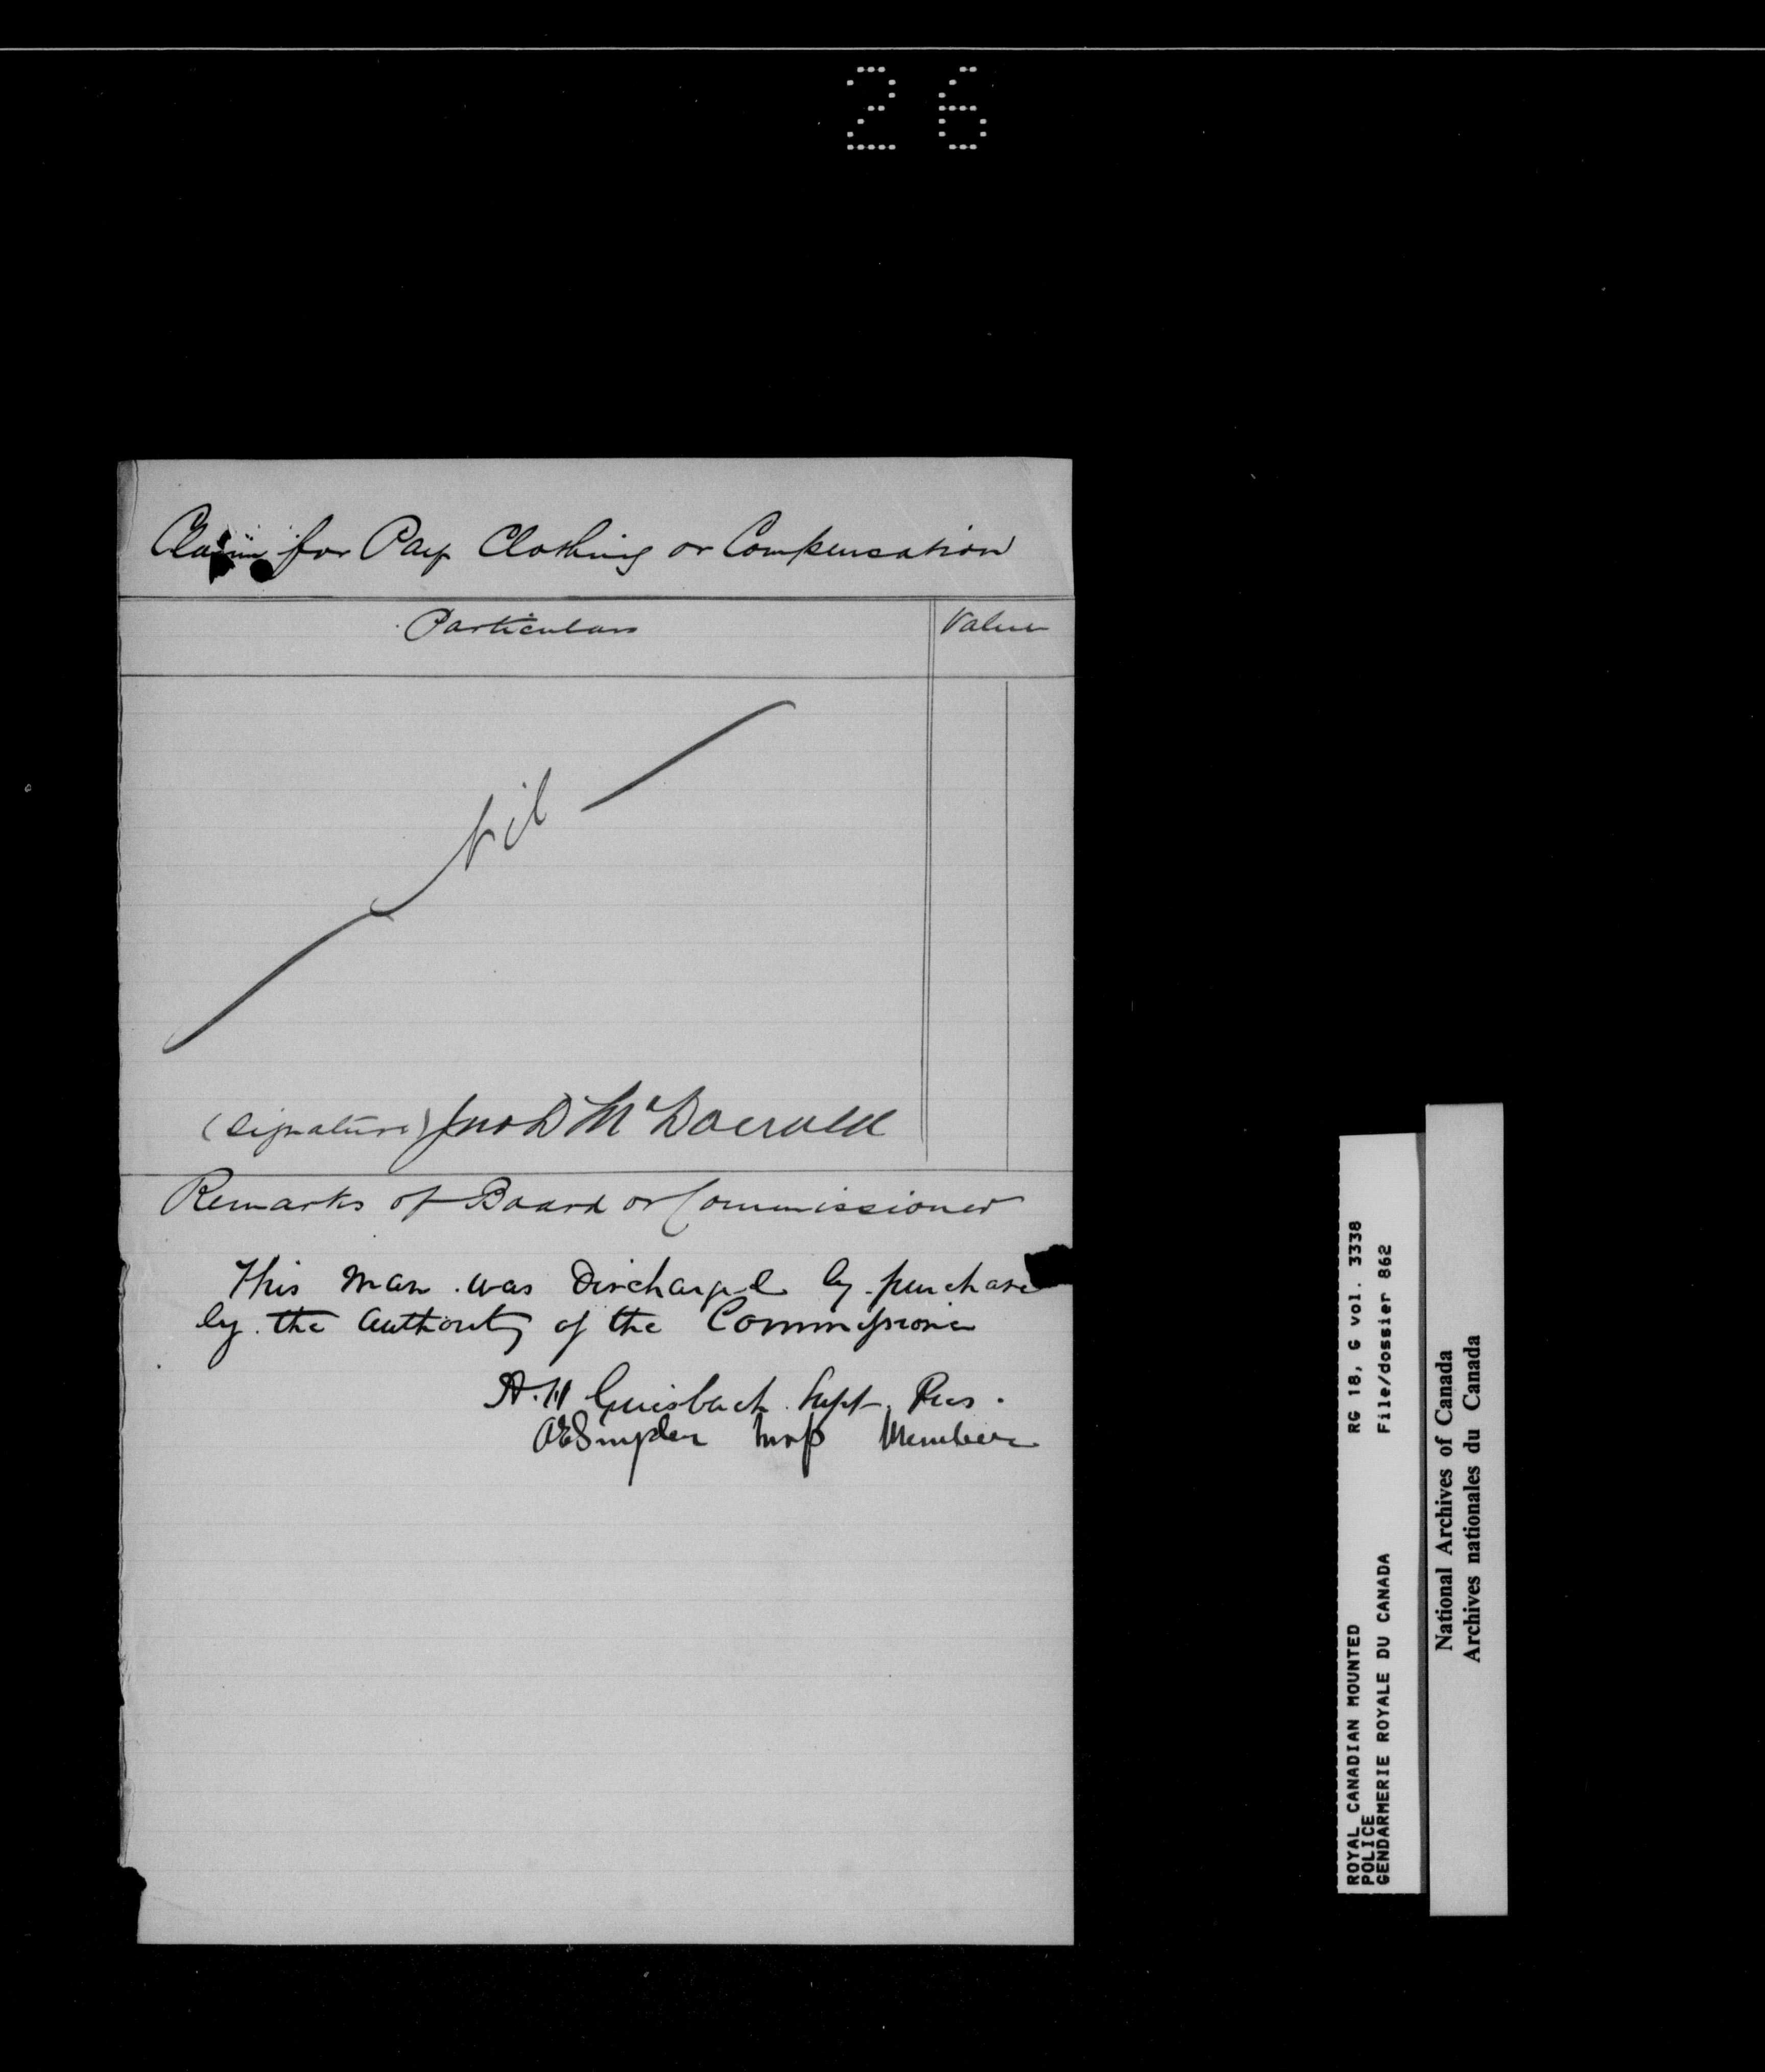 26
Claim for Pay Clothing or Compensation
Particulars Value
Nil
(Signature) Jno D McDonald
Remarks of Board or Commissioner
This man was Discharged by purchase
by the Authority of the Commissioner
A. H. Griesbach Supt. Pres.
AESnyder Insp Member
ROYAL CANADIAN MOUNTED
POLICE
GENDARMERIE ROYALE DU CANADA
RG 18, G vol. 3338
File/dossier 862
National Archives of Canada
Archives nationales du Canada